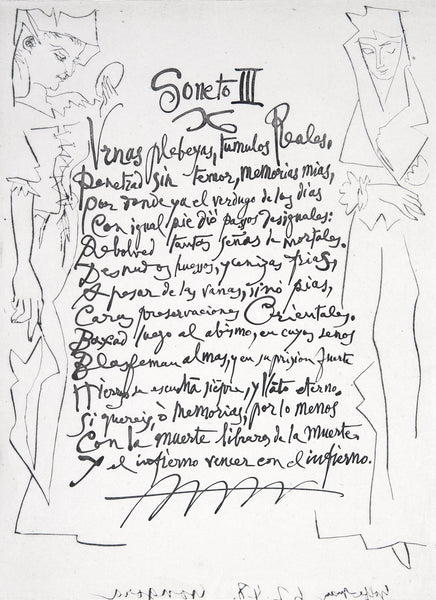 Soneto III
Vrnas plebeyas, tumulos Reales,
Penetrad sin temor, memorias mias,
Por donde ya el verdugo de los dias
Con igual pie dió passos desiguales:
Rebolved tantas señas de mortales.
Desnudos huessos, y cenizas frias,
A pesar de las vanas, sino pias,
Caras preservaciones Orientales.
Baxad luego al abismo, en cuyos senos
Blasfeman almas, y en su prision fuerte
Hierros se escuchã siẽpre, y llãto eterno.
Si quereis, ò memorias, por lo menos
Con la muerte libraros de la Muerte
Y el infierno vencer con el infierno.
Gongora